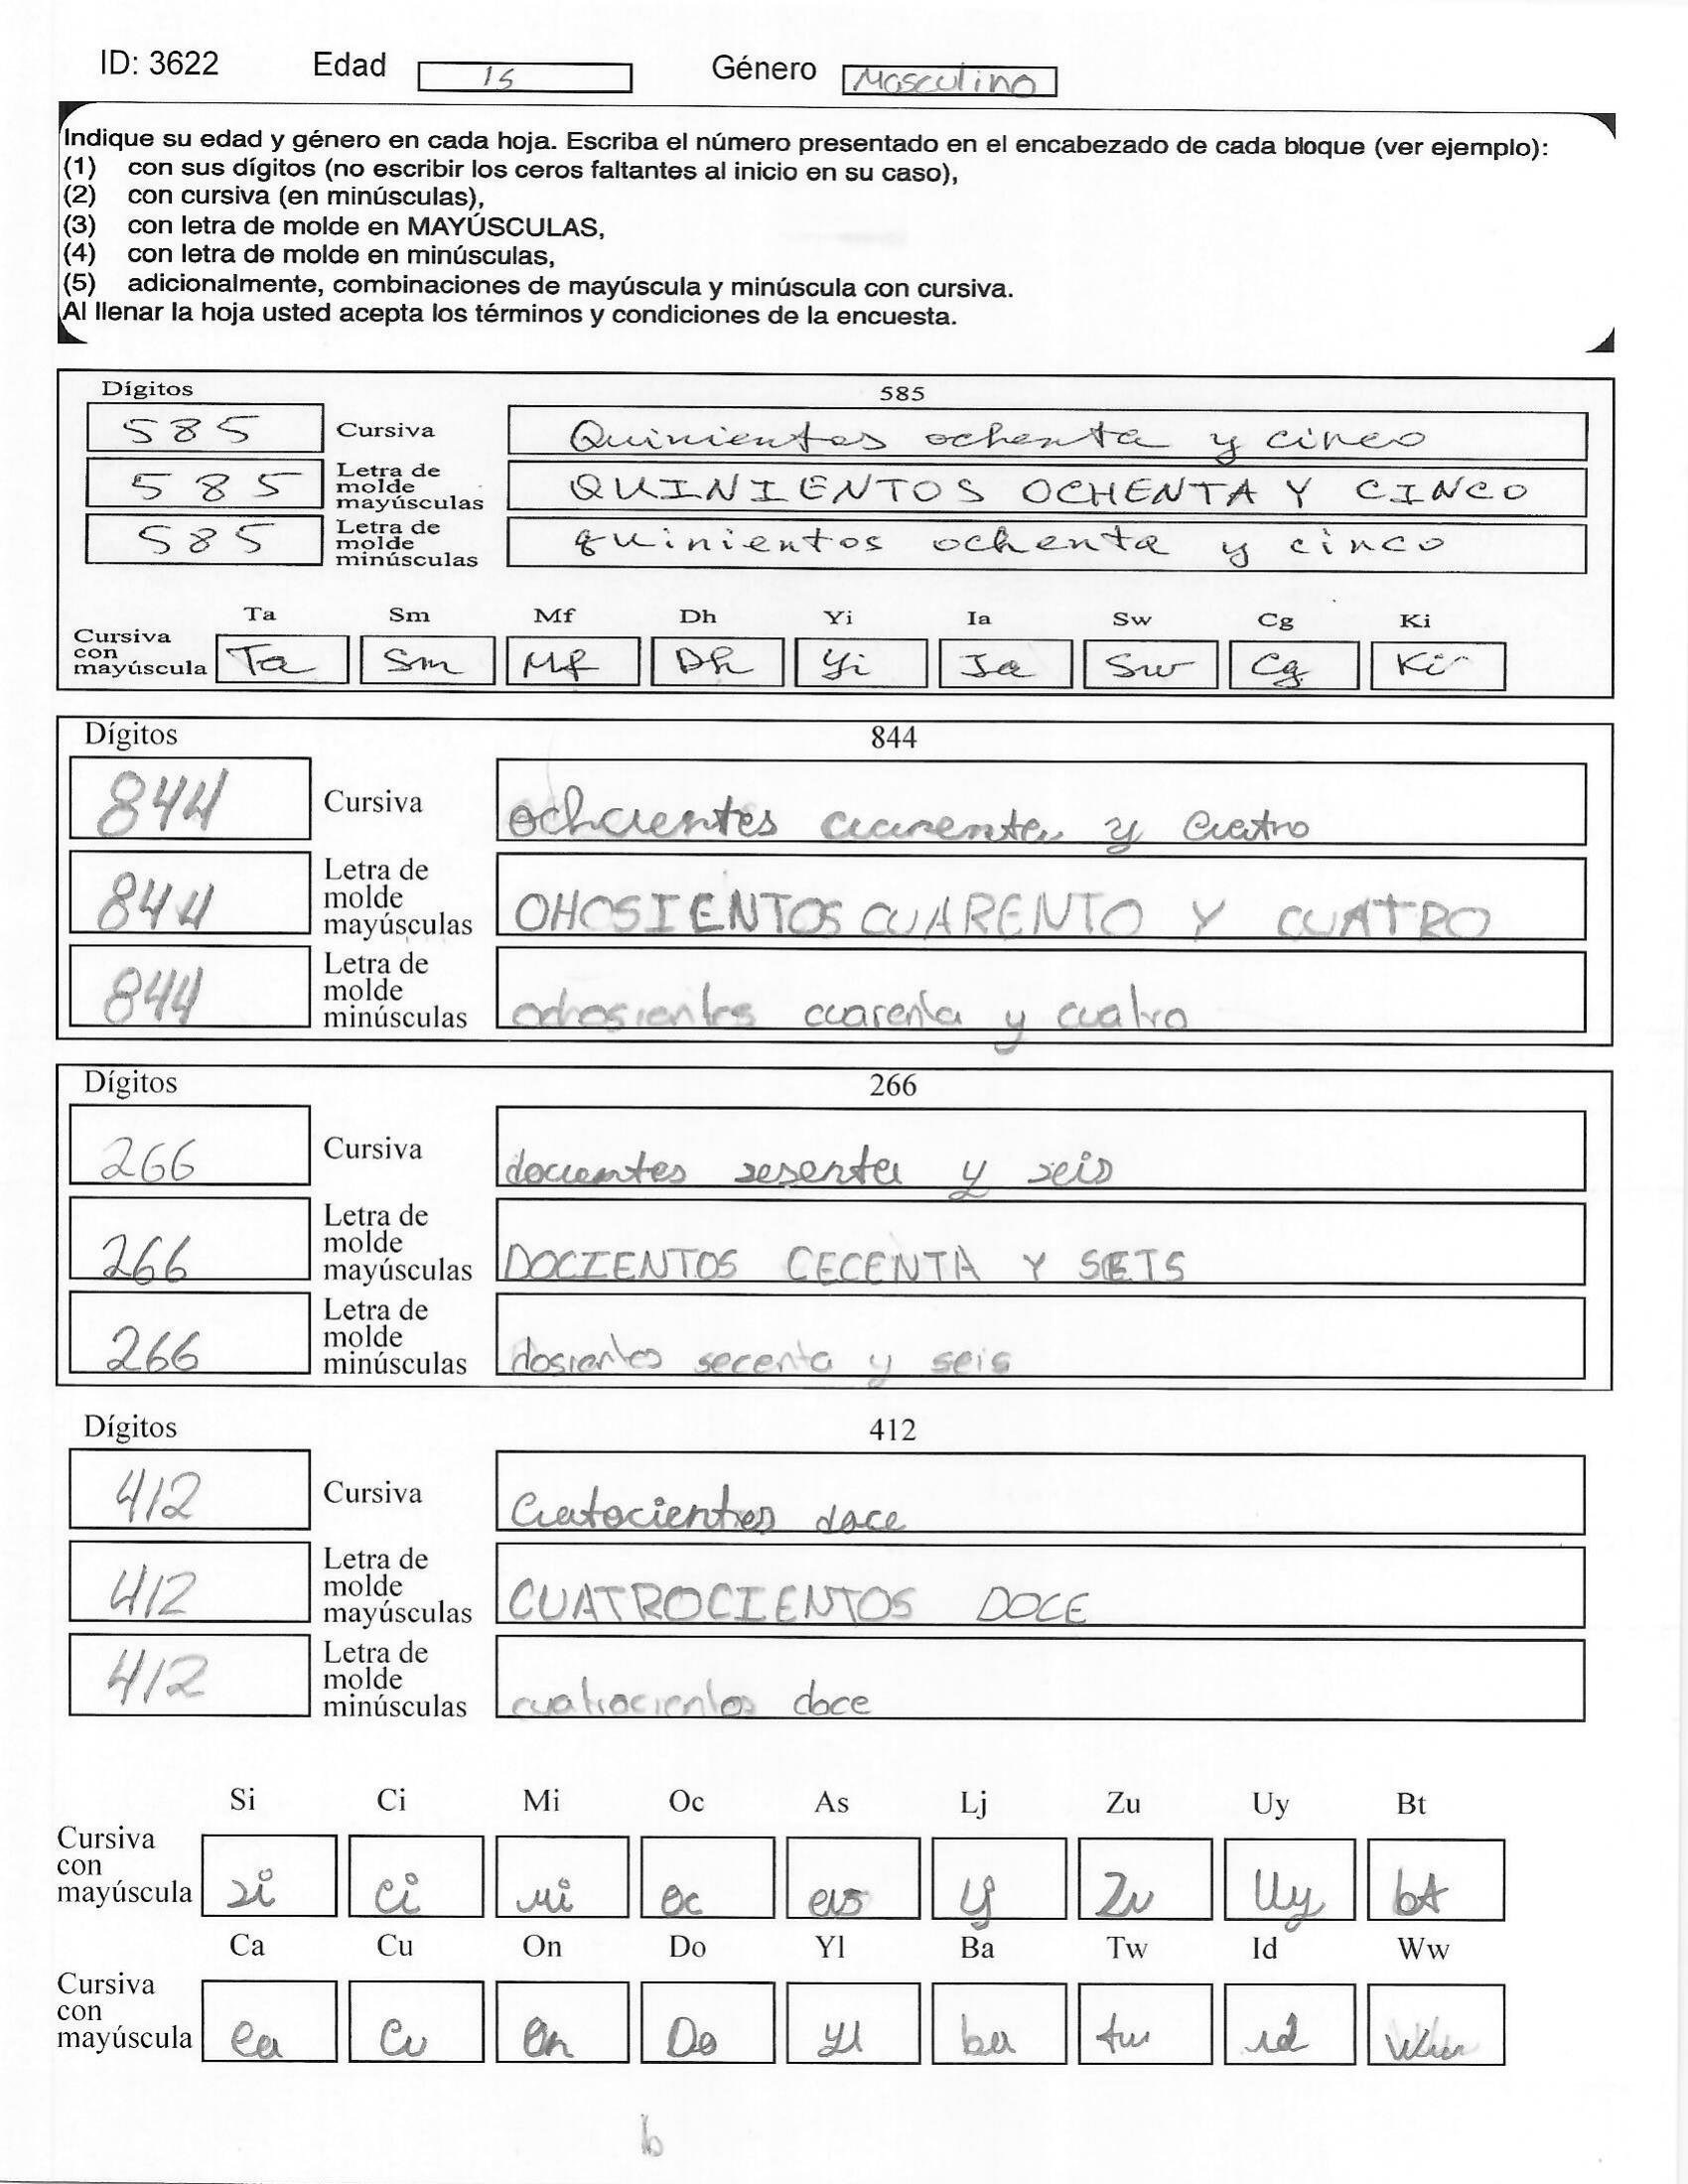 ID: 3622 Edad 15 Género Masculino
Indique su edad y género en cada hoja. Escriba el número presentado en el encabezado de cada bloque (ver ejemplo):
(1) con sus dígitos (no escribir los ceros faltantes al inicio en su caso),
(2) con cursiva (en minúsculas),
(3) con letra de molde en MAYÚSCULAS,
(4) con letra de molde en minúsculas,
(5) adicionalmente, combinaciones de mayúscula y minúscula con cursiva.
Al llenar la hoja usted acepta los términos y condiciones de la encuesta.
Dígitos 585
585 Cursiva Quinientos ochenta y cinco
585 Letra de molde mayúsculas QUINIENTOS OCHENTA Y CINCO
585 Letra de molde minúsculas quinientos ochenta y cinco
Ta Sm Mf Dh Yi Ia Sw Cg Ki
Cursiva con mayúscula Ta Sm Mf Dh Yi Ia Sw Cg Ki
Dígitos 844
844 Cursiva cuarenta y cuatro
844 Letra de molde mayúsculas OHOSIENTOS CUARENTO Y CUATRO
844 Letra de molde minúsculas ochosientos cuarenta y cuatro
Dígitos 266
266 Cursiva docientos sesenta y seis
266 Letra de molde mayúsculas DOCIENTOS CECENTA Y SEIS
266 Letra de molde minúsculas dosientos secenta y seis
Dígitos 412
412 Cursiva Cuatocientos doce
412 Letra de molde mayúsculas CUATROCIENTOS DOCE
412 Letra de molde minúsculas cuatrocientos doce
Si Ci Mi Oc As Lj Zu Uy Bt
Cursiva con mayúscula si ci mi oc as lj Zu Uy bt
Ca Cu On Do Yl Ba Tw Id Ww
Cursiva con mayúscula Ca Cu On Do Yl ba tw id Ww
b